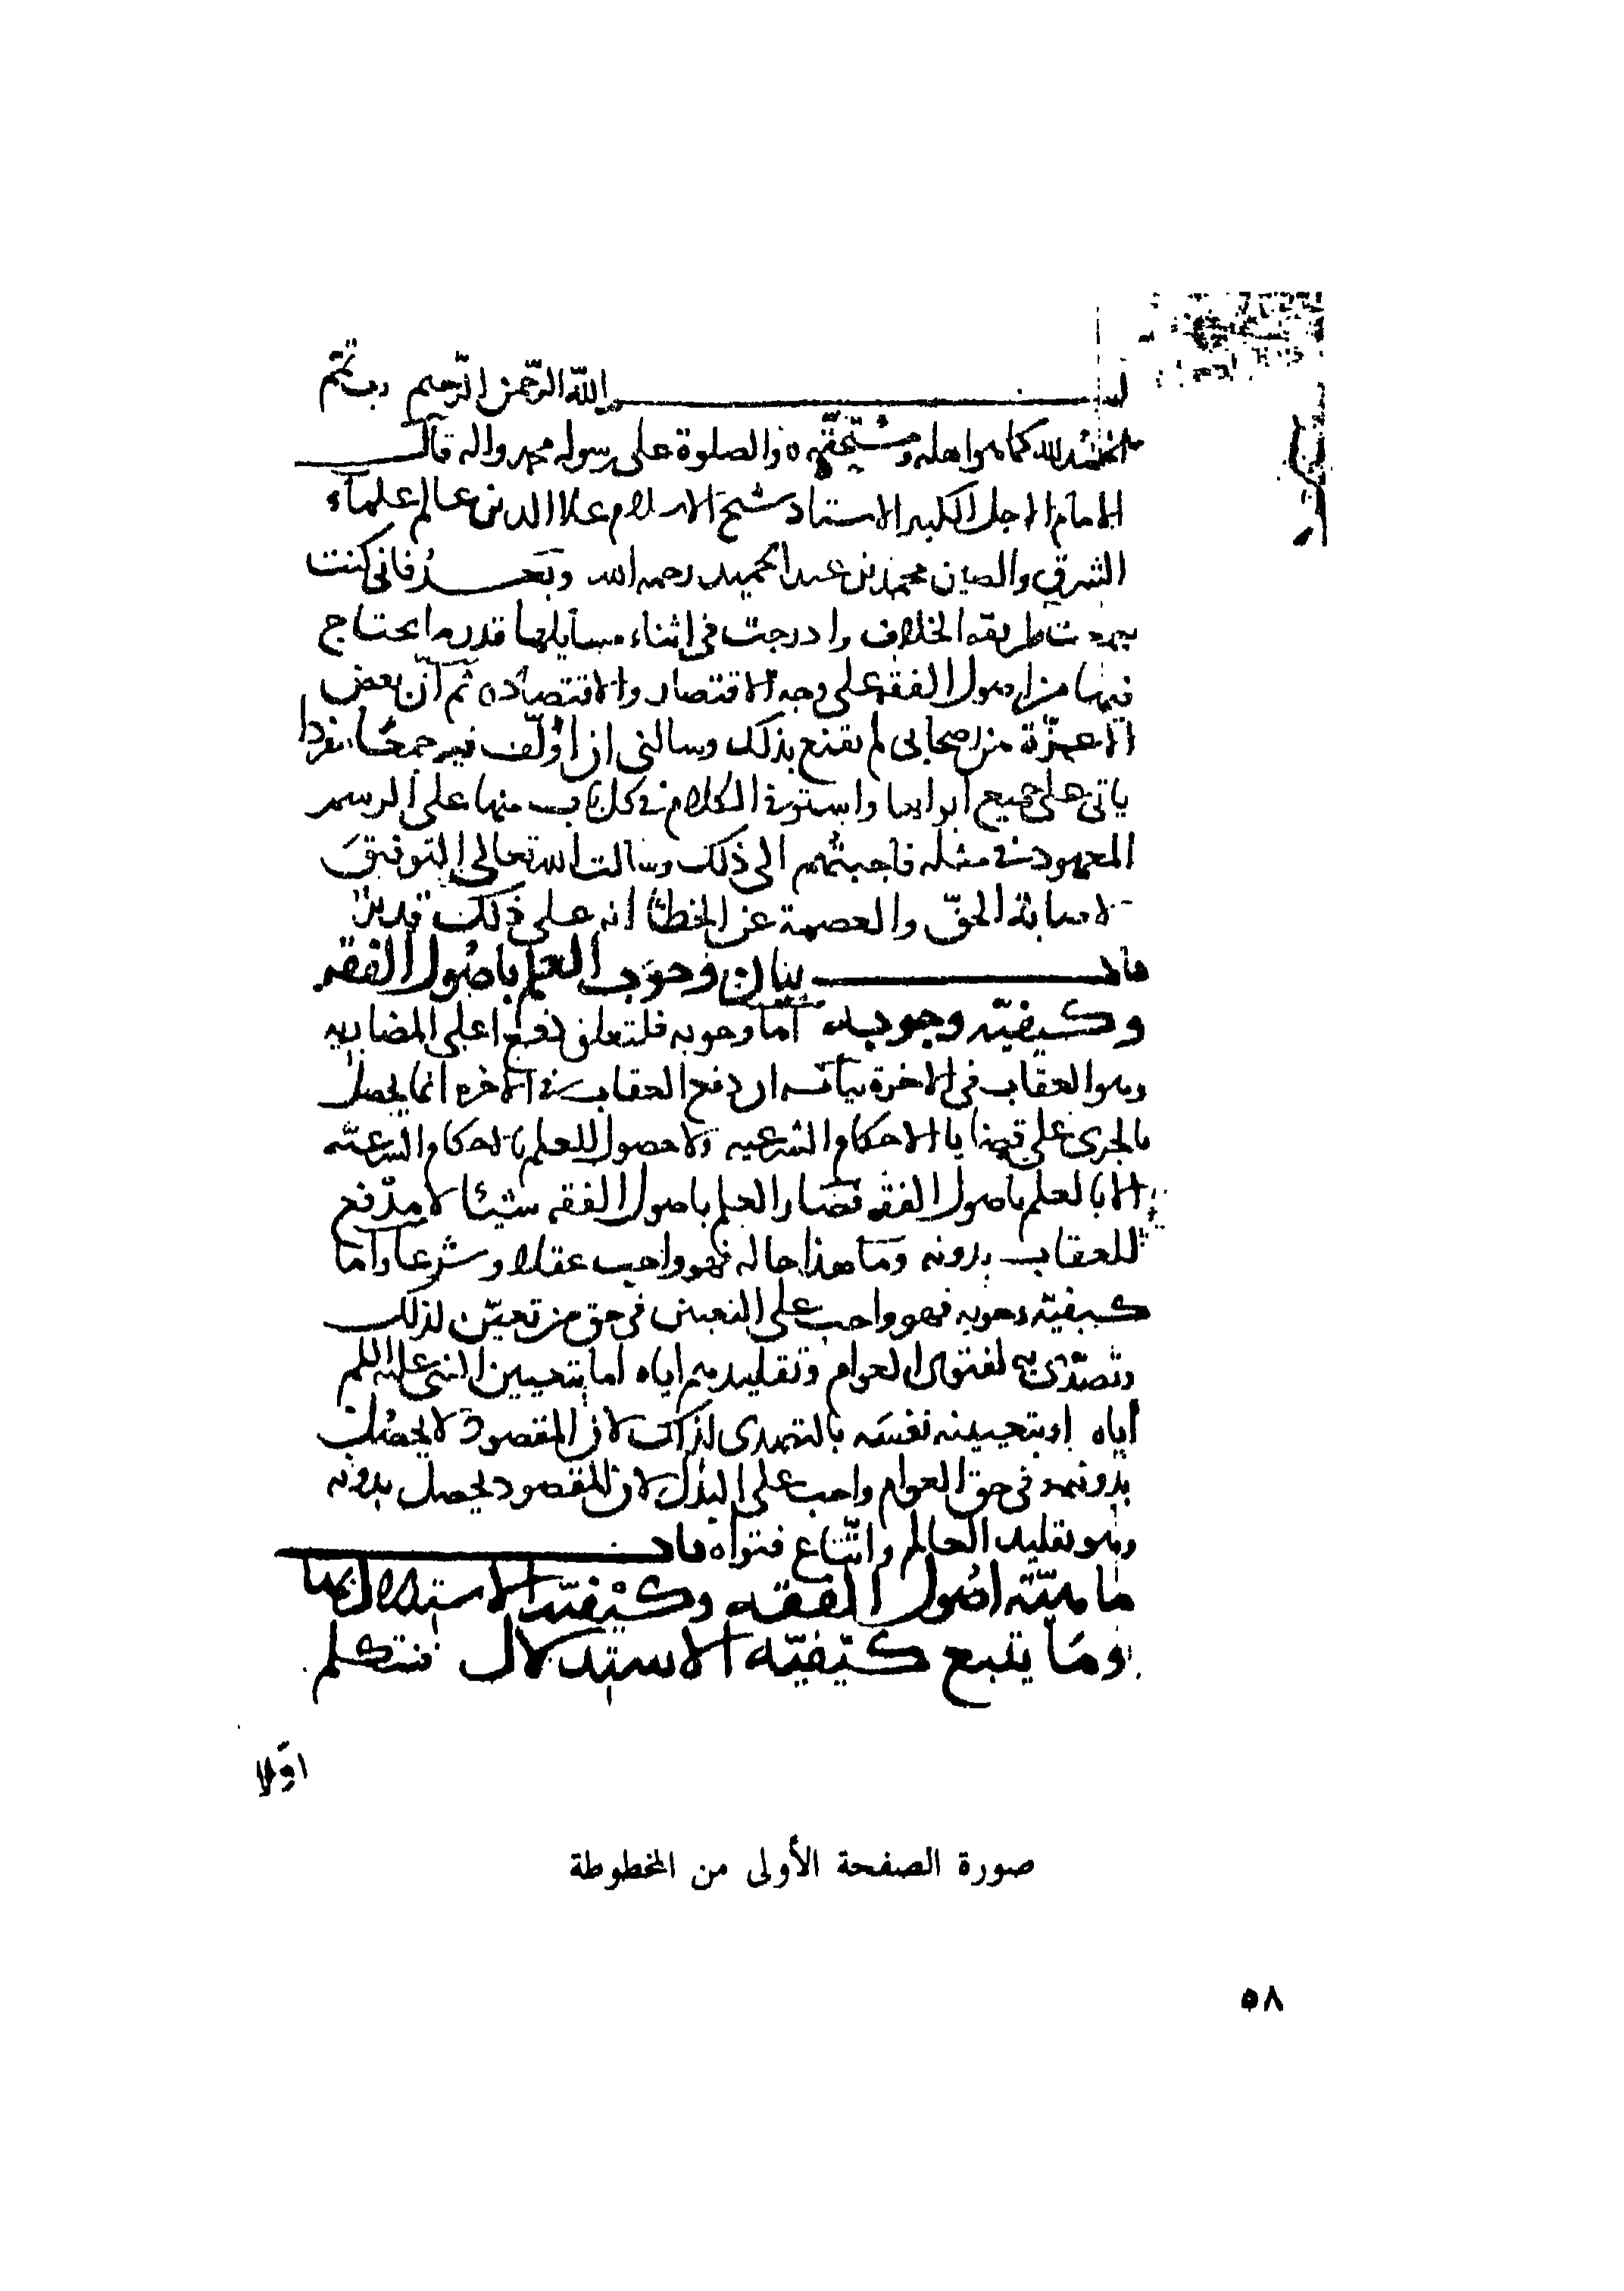 بسم الله الرحمن الرحيم رب تمم
الحمد لله كما هو اهله ومستحقه والصلوة على رسوله محمد واله قال
الامام الاجل الكبير الاستاد شيخ الاسلام علا الدين عالم علماء
الشرق والصين محمد بن عبد الحميد رحمه الله وبعد فانى كنت
طريقة الخلاف وادرجت فى اثناء مسايلها قدر ما يحتاج
فيها من اصول الفقه على وجه الاقتصار والاقتصاد ثم ان بعض
الاعزة من اصحابى لم يقنع بذلك وسالنى ان اؤلف فيه جمعا مفردا
ياتى على جميع ابوابها واستوفى الكلام فى كل باب منها على الرسم
المعهود فى مثله فاجبتهم الى ذلك وسالت الله تعالى التوفيق
لاصابة الحق والعصمة عن الخطا انه على ذلك قدير
باب بيان وجوب العلم باصول الفقه
وكيفية وجوبه اما وجوبه فلتعلق دفع اعلى المضار به
وهو العقاب فى الاخرة بيانه ان دفع العقاب فى الاخره انما يحصل
بالجرى على قضايا الاحكام الشرعيه ولا حصول للعلم بالاحكام الشرعية
الا بالعلم باصول الفقه فصار العلم باصول الفقه شيئا لا مدفع
للعقاب بدونه وما هذا حاله فهو واجب عقلا وشرعا واما
كيفية وجوبه فهو واجب على التعيين فى حق من تعين لذلك
وتصدى لفتوى العوام وتقليدهم اياه اما بتعيين النبى عليه السلم
اياه او بتعيينه نفسه بالتصدى لذلك لان المقصود لا يحصل
بدونه وفى حق العوام واجب على البدل لان المقصود يحصل بدونه
وهو تقليد العالم واتباع فتواه باب
ماهية اصول الفقه وكيفية الاستدلال بها
وما يتبع كيفية الاستدلال فنتكلم
اولا
صورة الصفحة الأولى من المخطوطة
٥٨